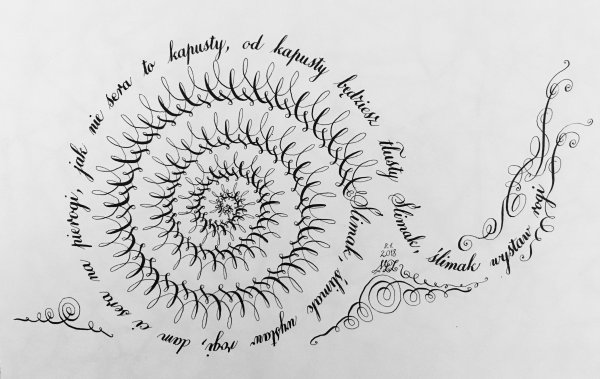 Ślimak, ślimak wystaw rogi, dam ci sera na pierogi, jak nie sera to kapusty, od kapusty będziesz tłusty Ślimak, ślimak wystaw rogi
2018